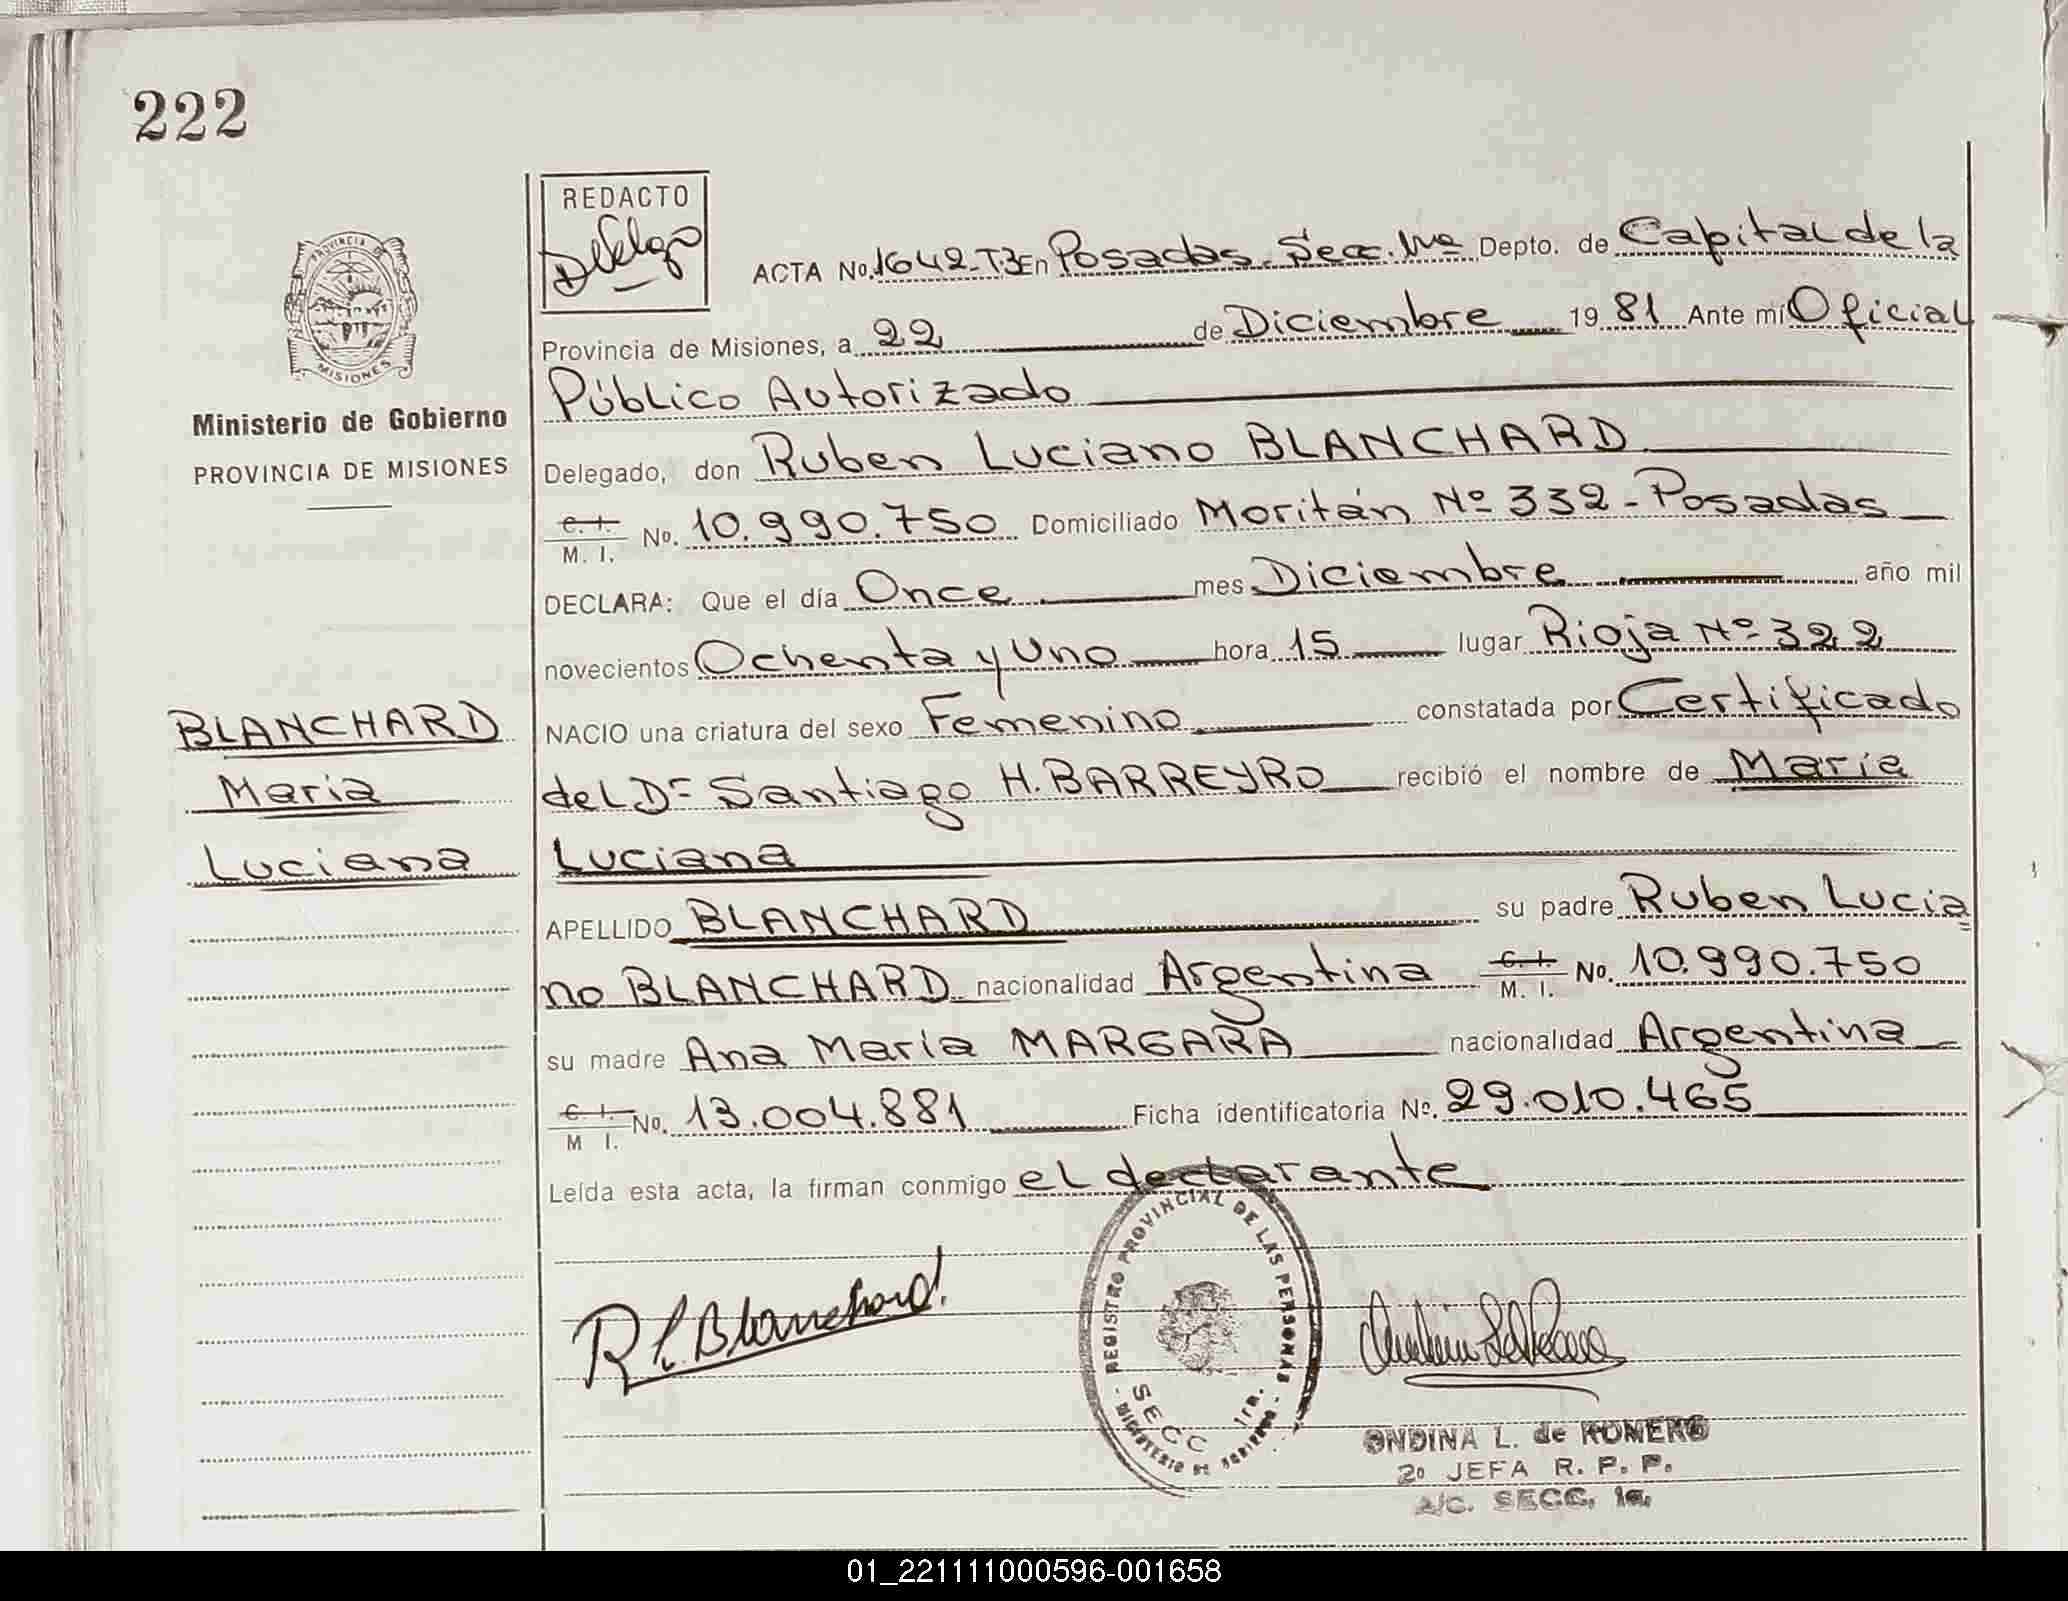 222
REDACTO
PROVINCIA DE
MISIONES
Ministerio de Gobierno
PROVINCIA DE MISIONES
ACTA No. 1642-T3 En Posadas-Secc. 1ra Depto. de Capital de la
Provincia de Misiones, a 22 de Diciembre 19 81 Ante mí Oficial
Público Autorizado
Delegado, don Ruben Luciano BLANCHARD
C. I.
M. I. No. 10.990.750 Domiciliado Moritán Nº 332-Posadas
DECLARA: Que el día Once mes Diciembre año mil
novecientos Ochenta y Uno hora 15 lugar Rioja Nº 322
NACIO una criatura del sexo Femenino constatada por Certificado
del Dr Santiago H. BARREYRO recibió el nombre de María
Luciana
BLANCHARD
María
Luciana
APELLIDO BLANCHARD su padre Ruben Lucia
no BLANCHARD nacionalidad Argentina C. I.
M. I. No. 10.990.750
su madre Ana María MARGARA nacionalidad Argentina
C. I.
M I. No. 13.004.881 Ficha identificatoria Nº. 29.010.465
Leída esta acta, la firman conmigo el declarante
R L. Blanchard
REGISTRO PROVINCIAL DE LAS PERSONAS - MINISTERIO DE GOBIERNO -
SECC 1ra.
ONDINA L. de ROMERO
2º JEFA R. P. P.
A/C. SECC. 1a.
01_221111000596-001658